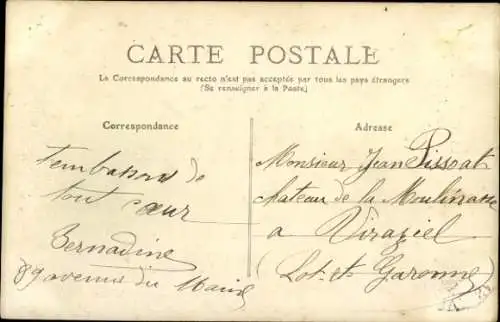 CARTE POSTALE
La Correspondance au recto n'est pas acceptée par tous les pays étrangers
(Se renseigner à la Poste)
Correspondance
Adresse
T'embassons de
tout cœur
Bernadine
89 avenue du Maine
Monsieur Jean Pissoat
chateau de la Moulinasse
a Viraziel
(Lot-et-Garonne)